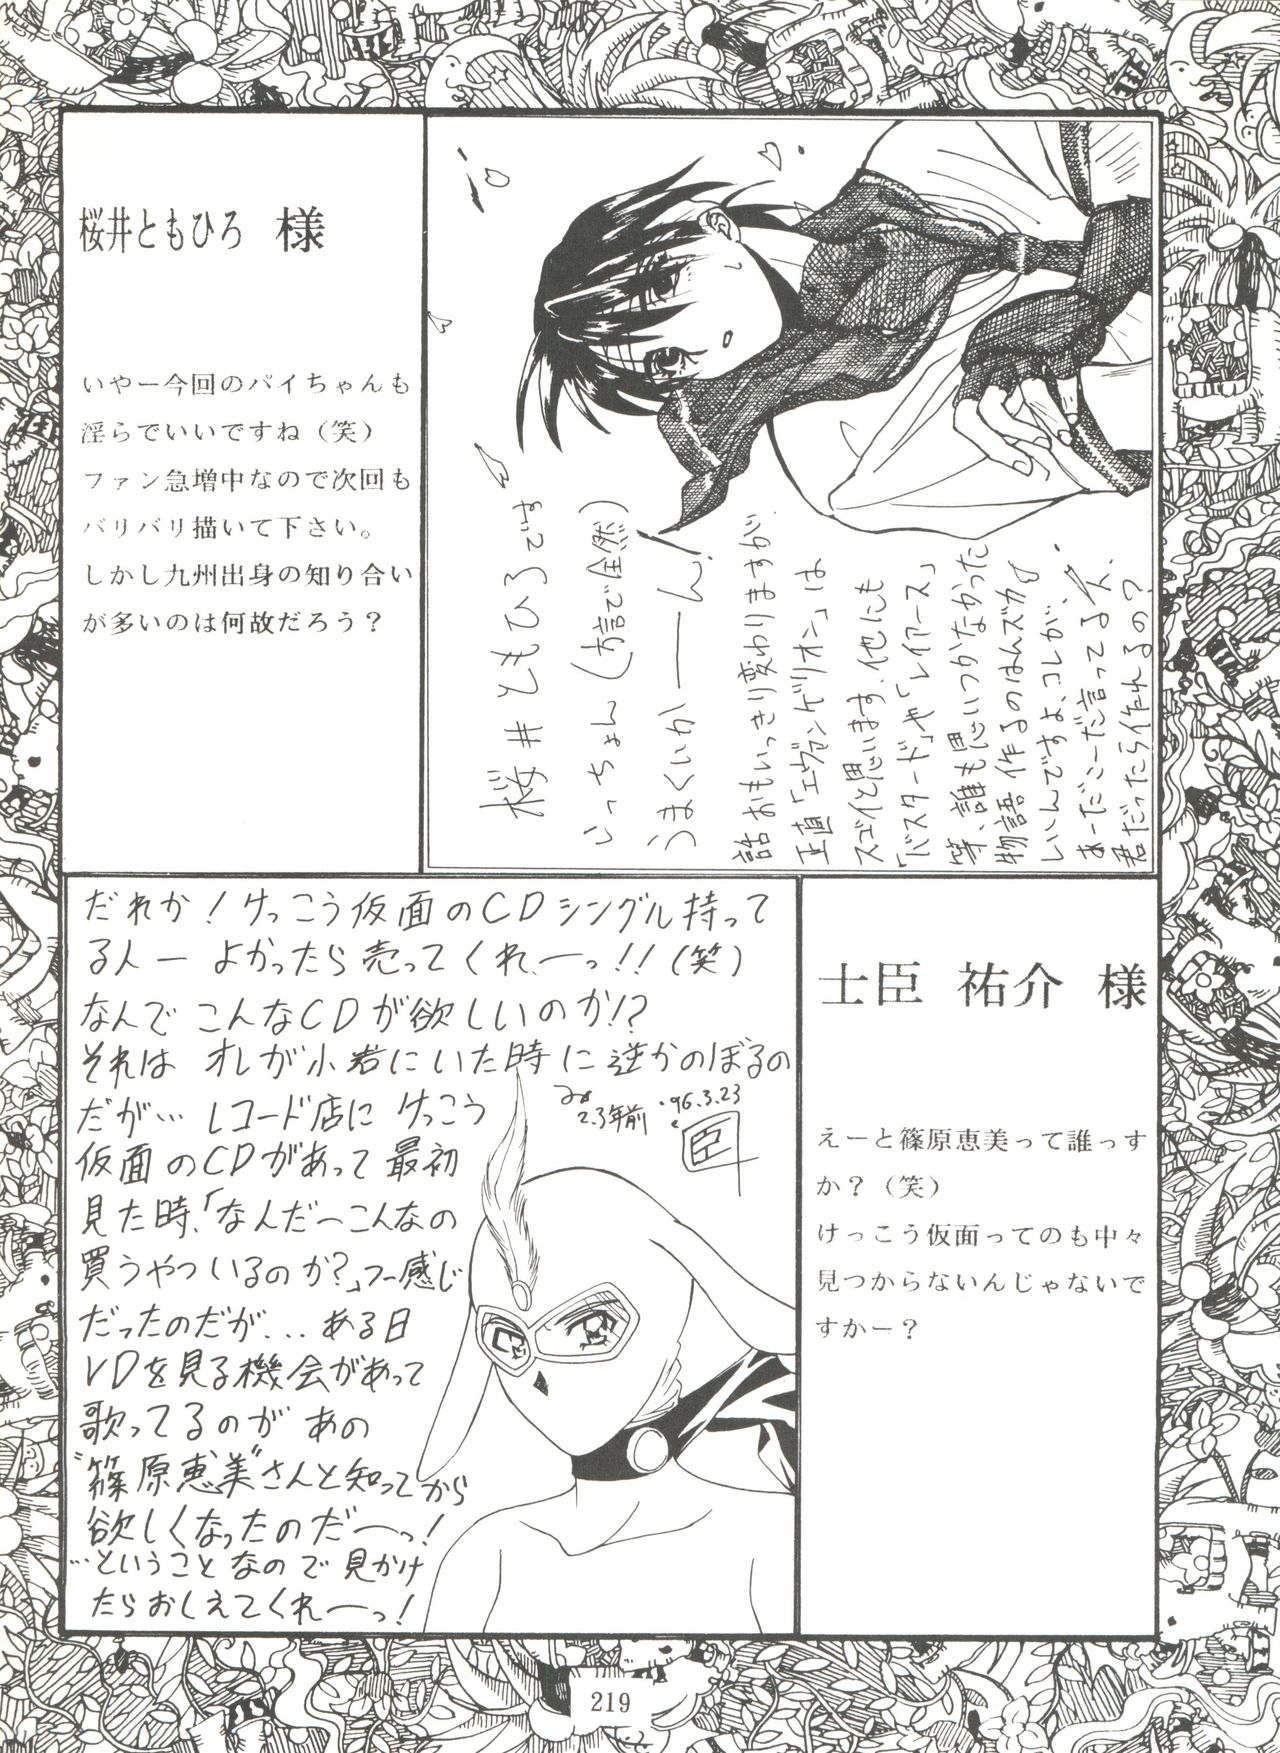 桜井ともひろ 様
いやー今回のパイちゃんも
淫らでいいですね（笑）
ファン急増中なので次回も
バリバリ描いて下さい。
しかし九州出身の知り合い
が多いのは何故だろう？
桜井ともひろです
いっちょん(方言で全然)
うまくいかーーん!
話おもいっきり変わりますが、
正直「エヴァンゲリオン」は
スゴイと思います、他にも
「バスタード」や「レイアース」
等、誰も思いつかなかった
物語作るのはムズカ
しいんですよ、コレが、
あーだこーだ言ってる人、
君だったら作れるの?
だれか!けっこう仮面のCDシングル持って
る人ー よかったら売ってくれーっ!!(笑)
なんでこんなCDが欲しいのか!?
それは オレが小倉にいた時に逆かのぼるの
だが… レコード店に けっこう
仮面のCDがあって最初
見た時、「なんだーこんなの
買うやついるのか?」つー感じ
だったのだが... ある日
LDを見る機会があって
歌ってるのが あの
"篠原恵美"さんと知ってから
欲しくなったのだーっ!
…ということなので 見かけ
たらおしえてくれーっ!
2.3年前
'96.3.23
臣
士臣 祐介 様
えーと篠原恵美って誰っす
か？（笑）
けっこう仮面ってのも中々
見つからないんじゃないで
すかー？
219